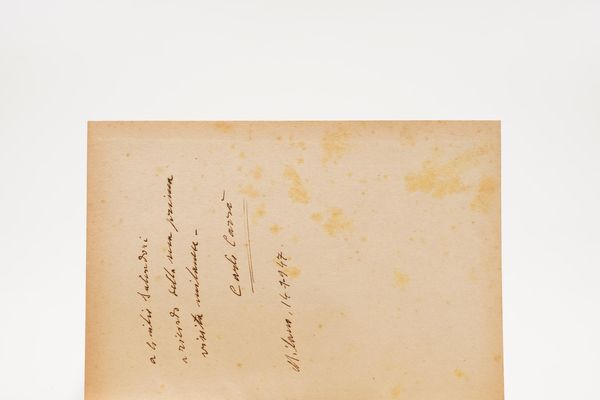 a Emilio Salindori
a ricordo della sua prima
visita milanese -
Carlo Carrà
Milano, 14.7.947.